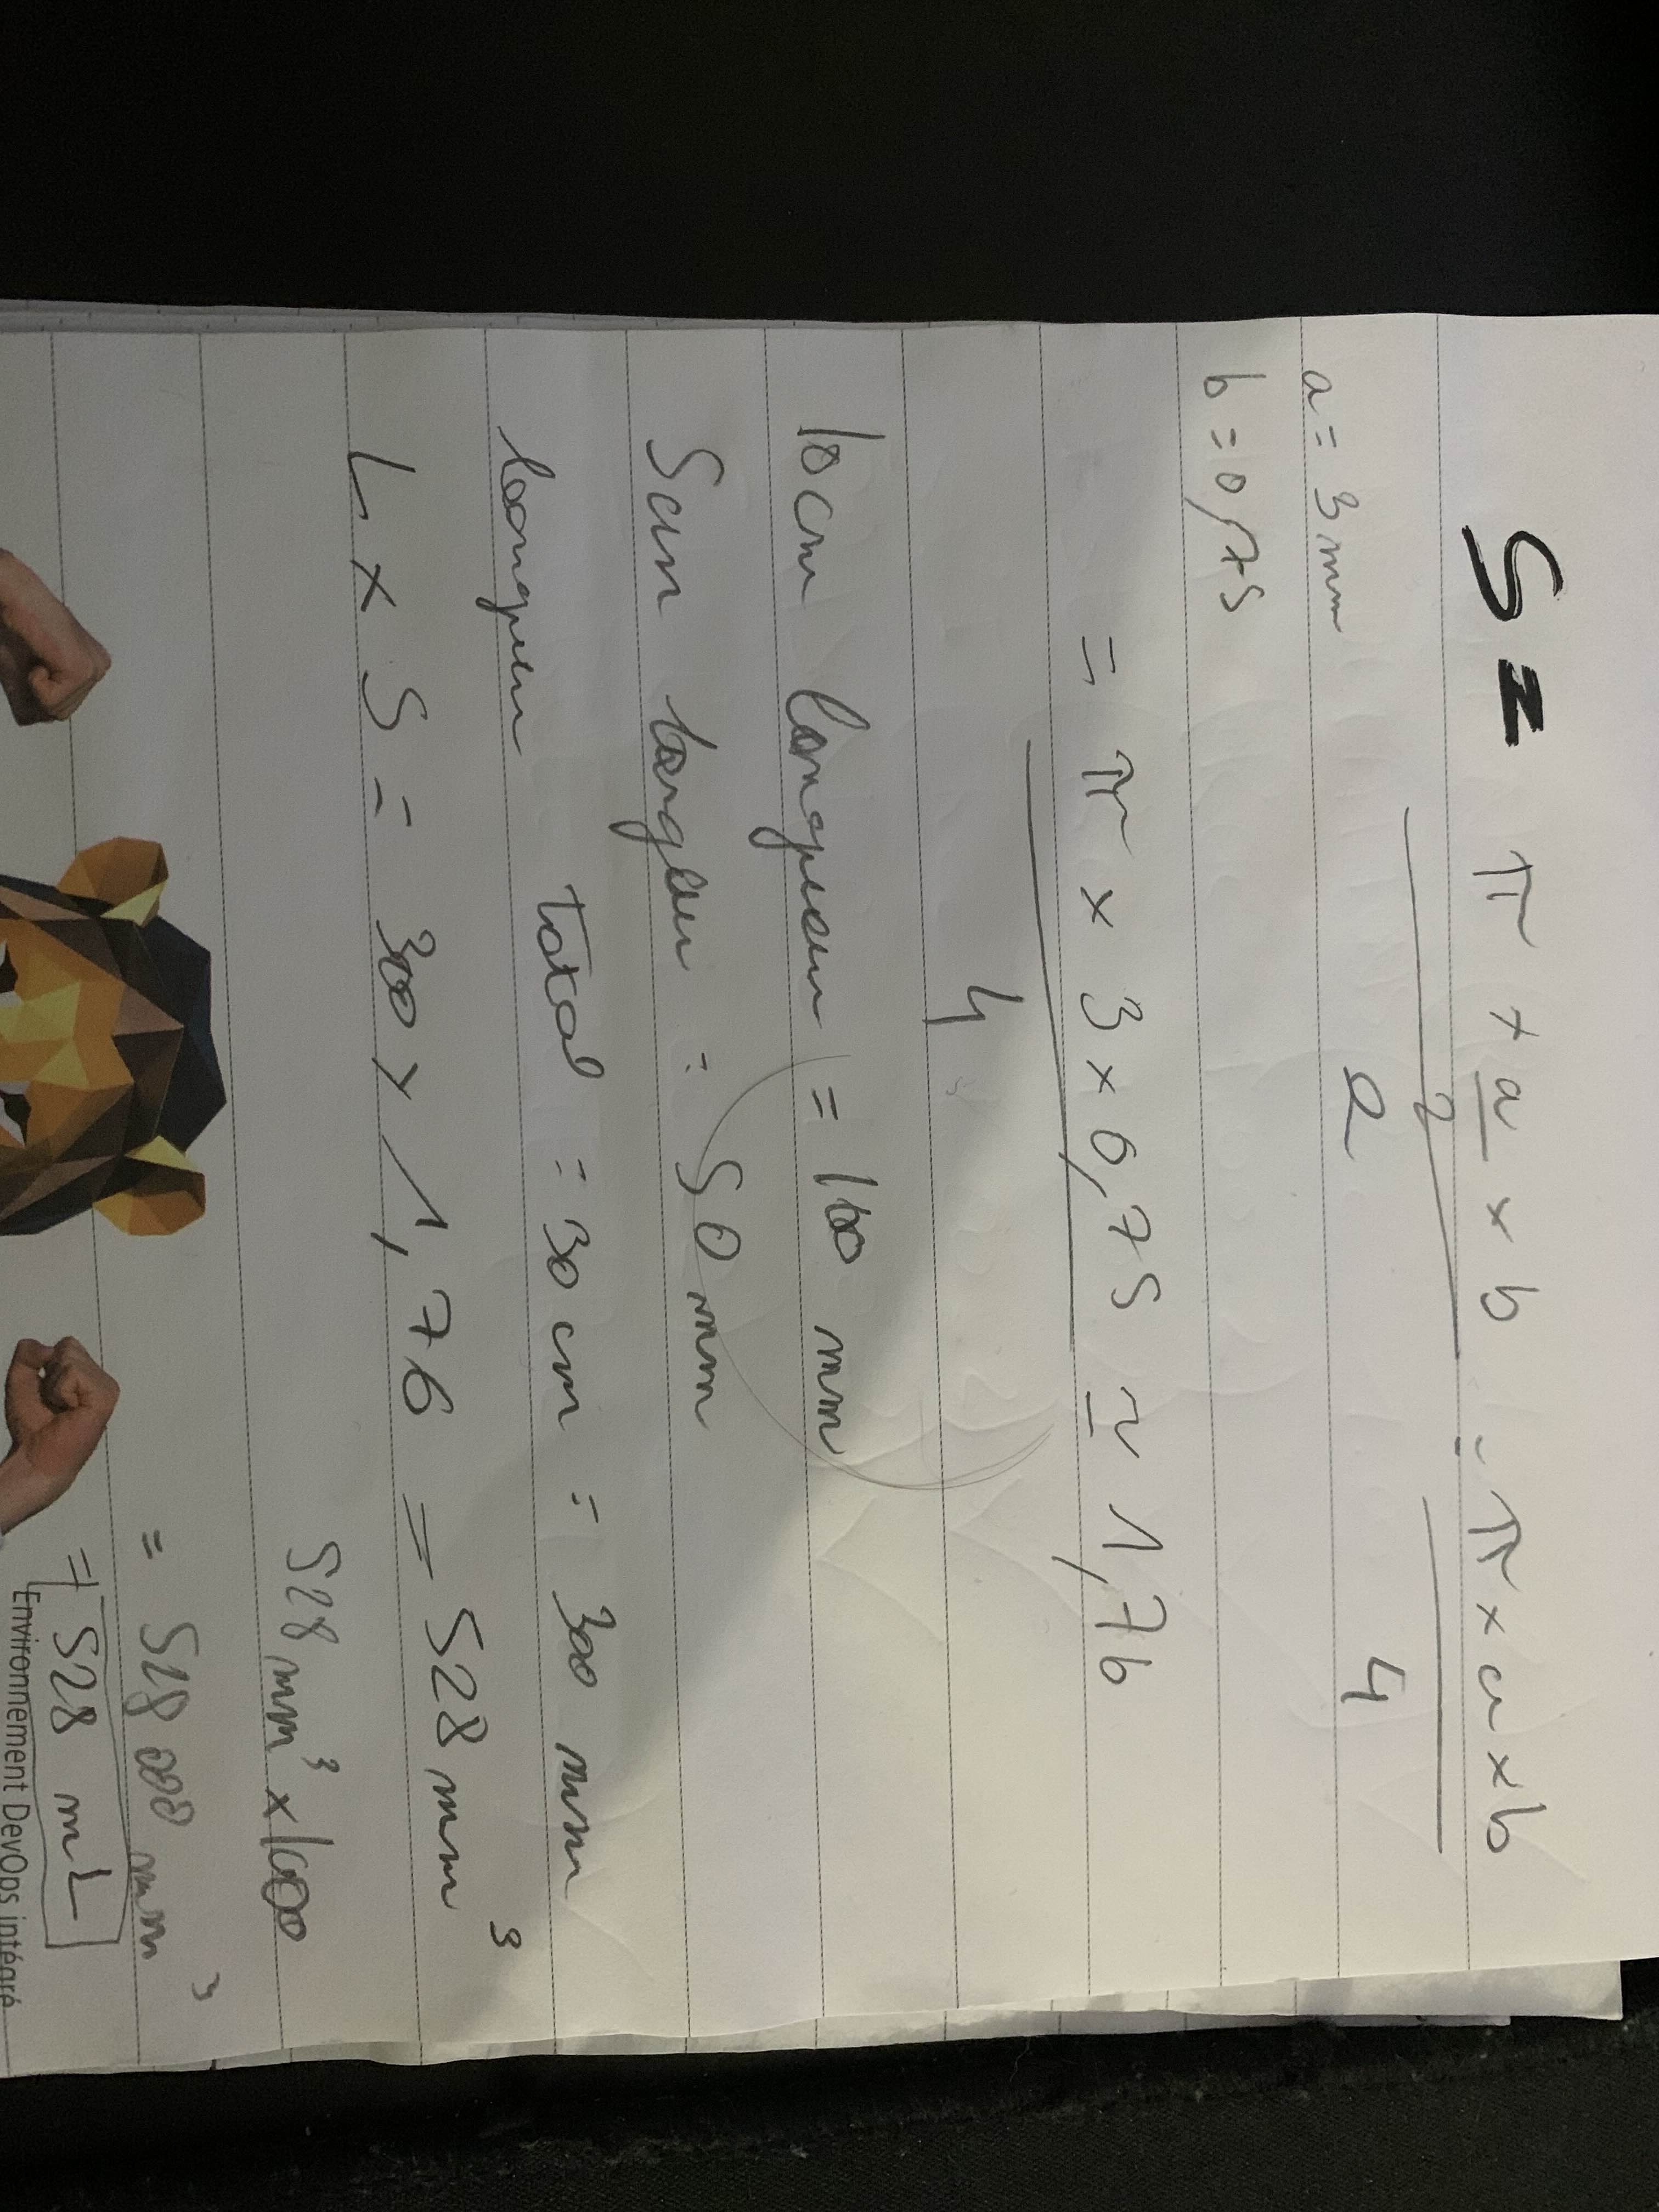 S = π × a/2 × b / 2 = π × a × b / 4
a = 3 mm
b = 0,75
= π × 3 × 0,75 / 4 ≃ 1,76
10cm longueur = 100 mm
5cm largeur = 50 mm
longueur total = 30 cm = 300 mm
L × S = 300 × 1,76 = 528 mm³
528 mm³ × 1000
= 528 000 mm³
= 528 mL
Environnement DevOps intégré